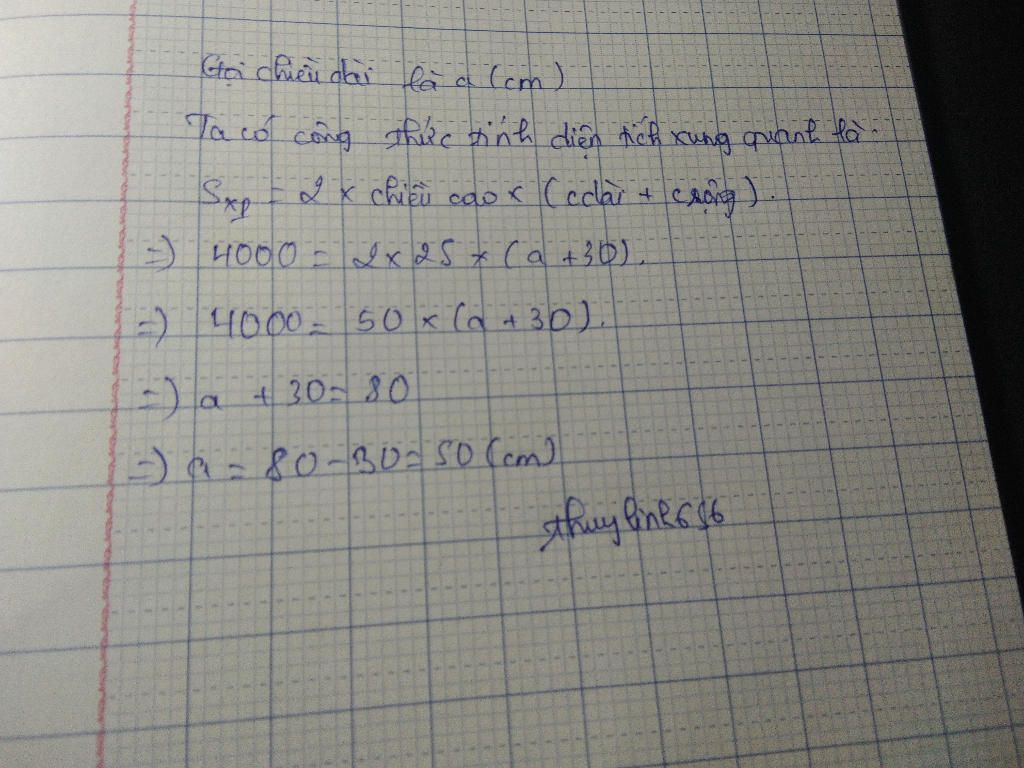 Gọi chiều dài là a (cm)
Ta có công thức tính diện tích xung quanh là.
Sxq = 2 x chiều cao x (cdài + crộng).
=) 4000 = 2 x 25 x (a + 30).
=) 4000 = 50 x (a + 30).
=) a + 30 = 80
=) a = 80 - 30 = 50 (cm)